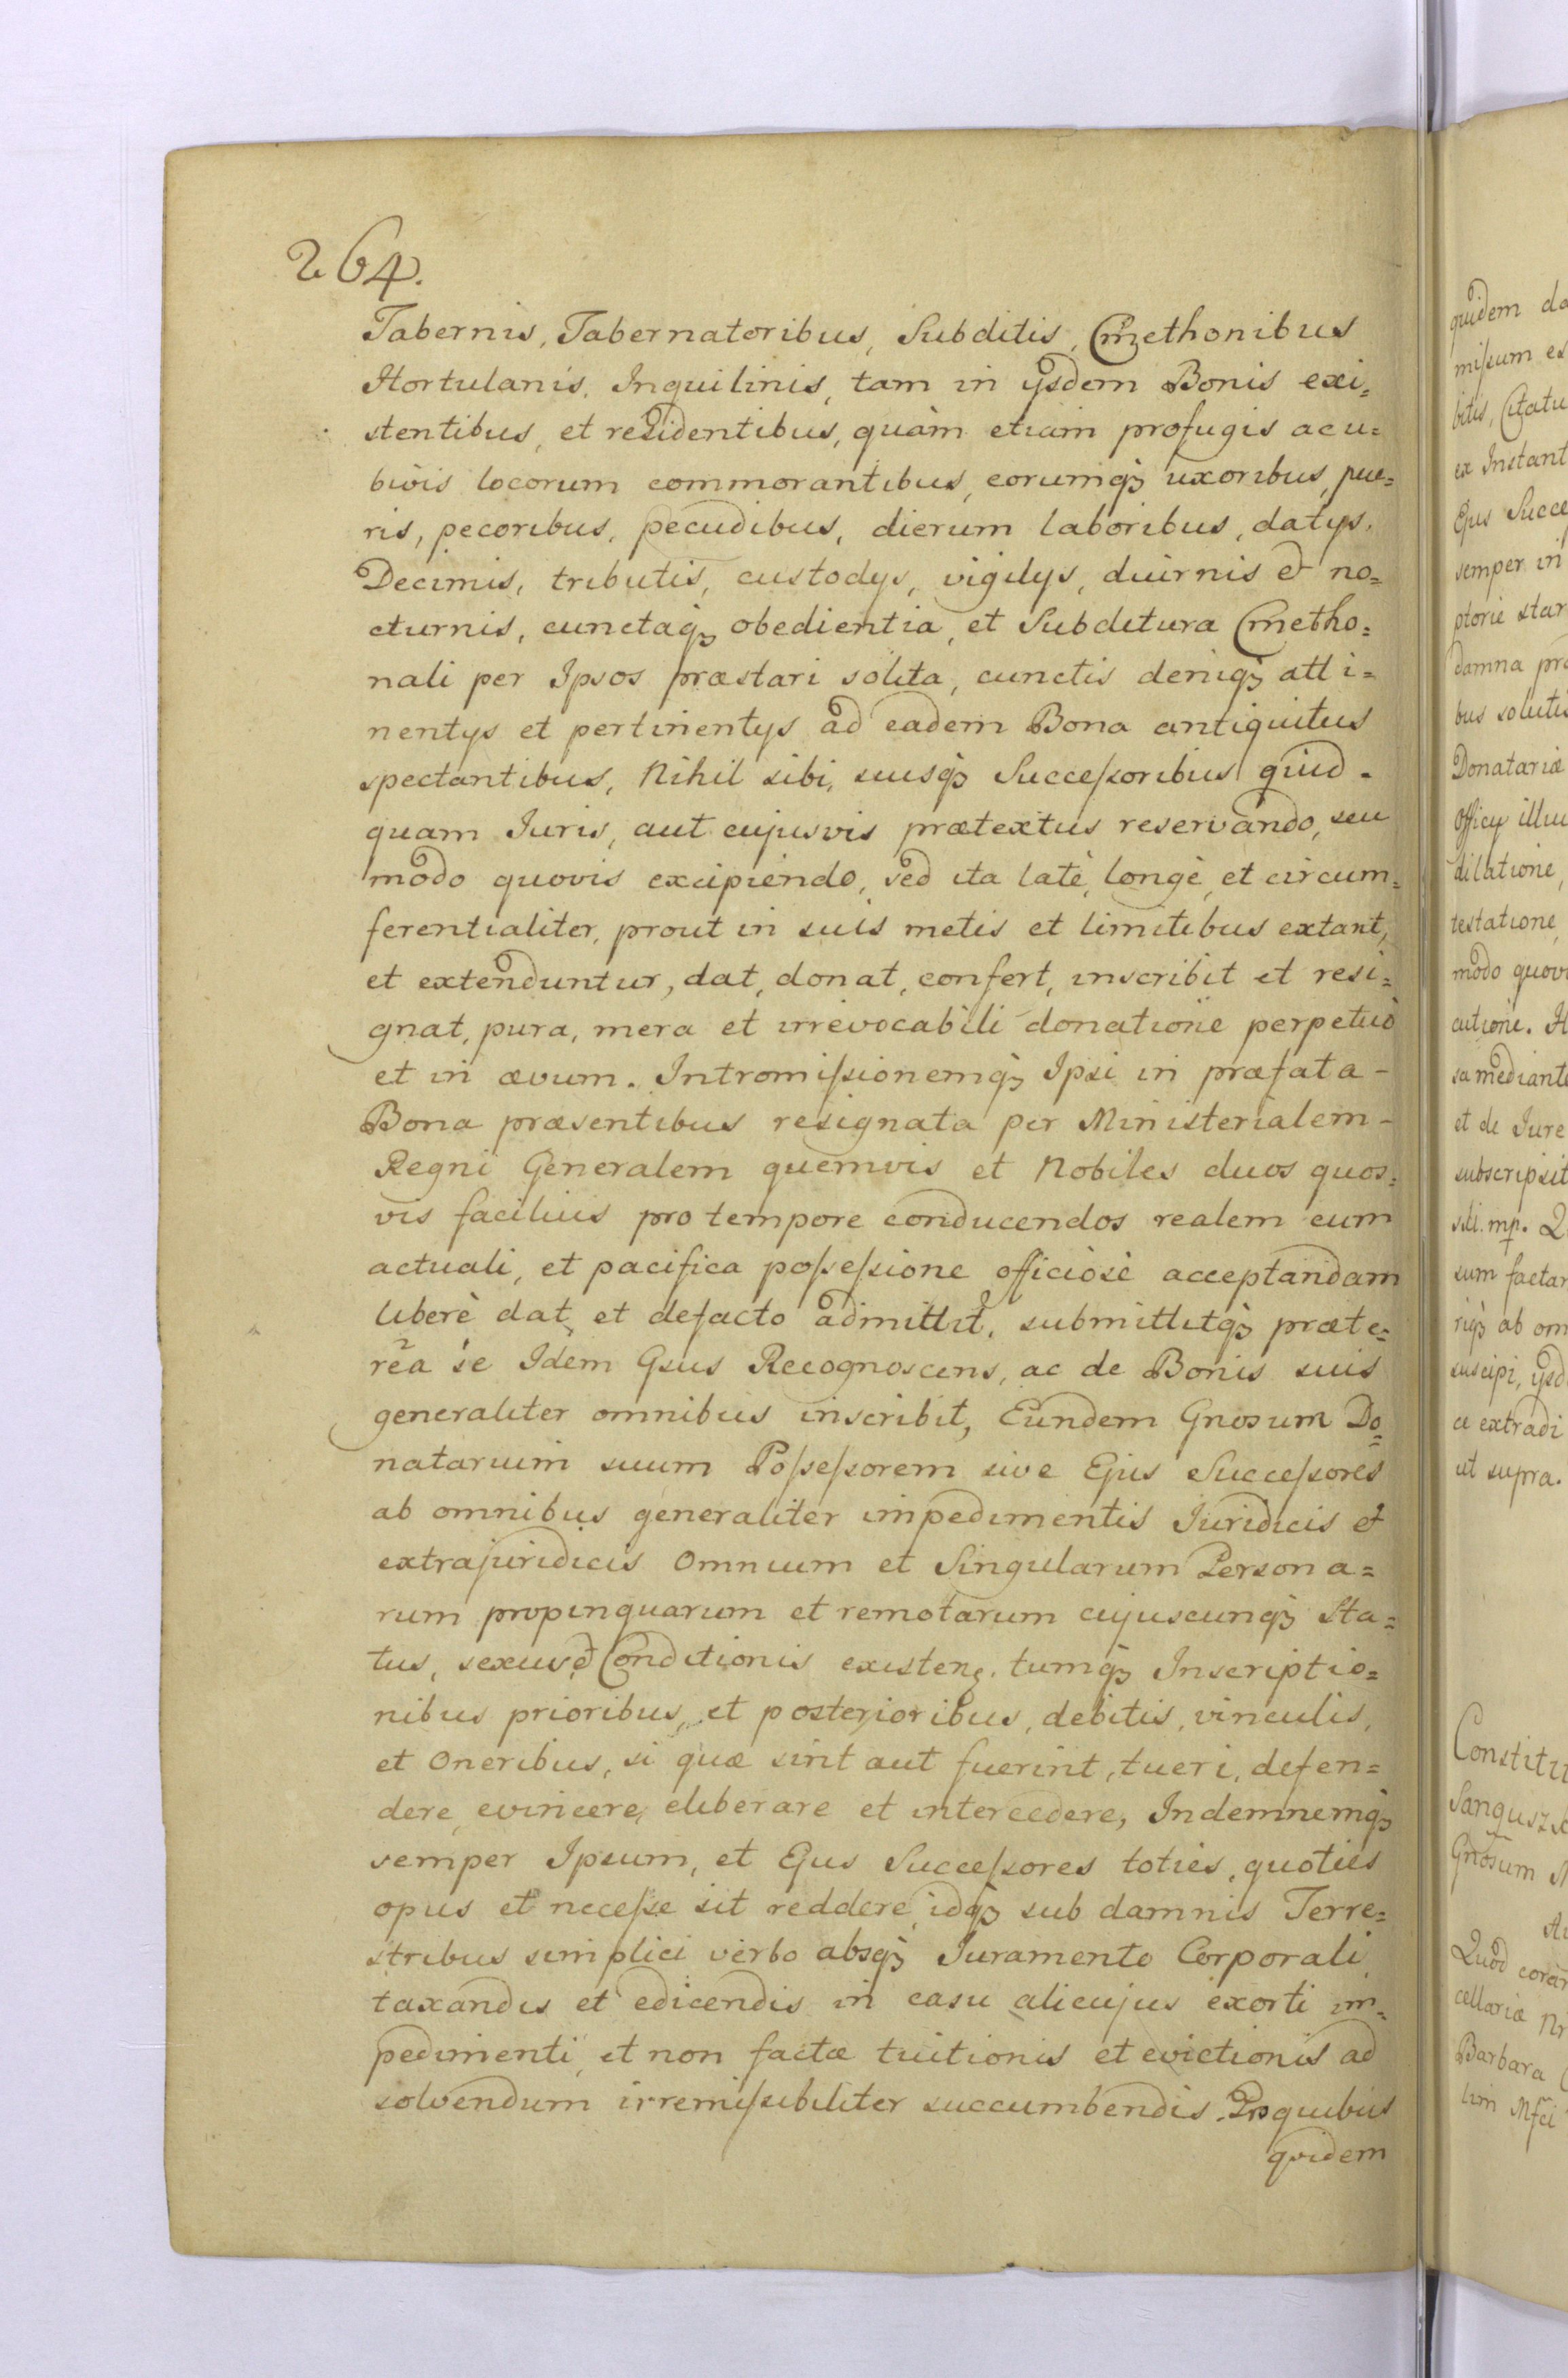 264.
Tabernis, Tabernatoribus, Subditis, Cmethonibus
Hortulanis, Inquilinis, tam in ijsdem Bonis exi=
stentibus, et residentibus, quàm etiam profugis ac u=
bivis locorum commorantibus, eorumq́ꝫ uxoribus, pue=
ris, pecoribus, pecudibus, dierum laboribus, datys,
Decimis, tributis, custodys, vigilys, diurnis & no=
cturnis, cunctaqꝫ obedientia, et Subditura Cmetho=
nali per Ipsos præstari solita, cunctis deniqꝫ atti=
nentys et pertinentys ad eadem Bona antiquitus
spectantibus, Nihil sibi, suisqꝫ Succeſsoribus quid=
quam Juris, aut cujusvis prætextus reservando, seu
modo quovis excipiendo, sed ita latè, longè, et circum=
ferentialiter, prout in suis metis et limitibus extant,
et extenduntur, dat, donat, confert, inscribit et resi=
gnat, pura, mera et irrevocabili donatione perpetuò
et in ævum. Intromiſsionemqꝫ Ipsi in præfata -
Bona præsentibus resignata per Ministerialem -
Regni Generalem quemvis et Nobiles duos quos=
vis facilius pro tempore conducendos realem cum
actuali, et pacifica poſseſsione officiosè acceptandam
liberè dat, et defacto admittit, submittitqꝫ præte=
rea se Idem Gsus Recognoscens, ac de Bonis suis
generaliter omnibus inscribit, Eundem Gnosum Do=
natarium suum Poſseſsorem sive Ejus Succeſsores
ab omnibus generaliter impedimentis Juridicis et
extrajuridicis Omnium et Singularum Persona=
rum propinquarum et remotarum cujuscunqꝫ Sta=
tus, sexusꝫ Conditionis existen. tumqꝫ Inscriptio=
nibus prioribus, et posterioribus, debitis, vinculis,
et Oneribus, si quæ sint aut fuerint, tueri, defen=
dere, evincere, eliberare et intercedere, Indemnemqꝫ
semper Ipsum, et Ejus Succeſsores toties, quoties
opus et neceſse sit reddere, idqꝫ sub damnis Terre=
stribus simplici verbo absqꝫ Juramento Corporali
taxandis et edicendis in casu alicujus exorti im=
pedimenti, et non factæ tuitionis et evictionis ad
solvendum irremiſsibiliter succumbendis. Pro quibus
quidem
quidem
miſsum
Citatu
ex Instant
Ejus Succe
semper in
ptorie star
damna
bus soluti
Donatariæ
Officy
dilatione,
testatione,
modo quov
cutione.
sa mediante
et de Jure
subscripsit
sum factar
ab om
suscipi,
extradi
ut supra.
Constitu
Sangusz
Gnosum
Quod coram
cellariæ
Barbara